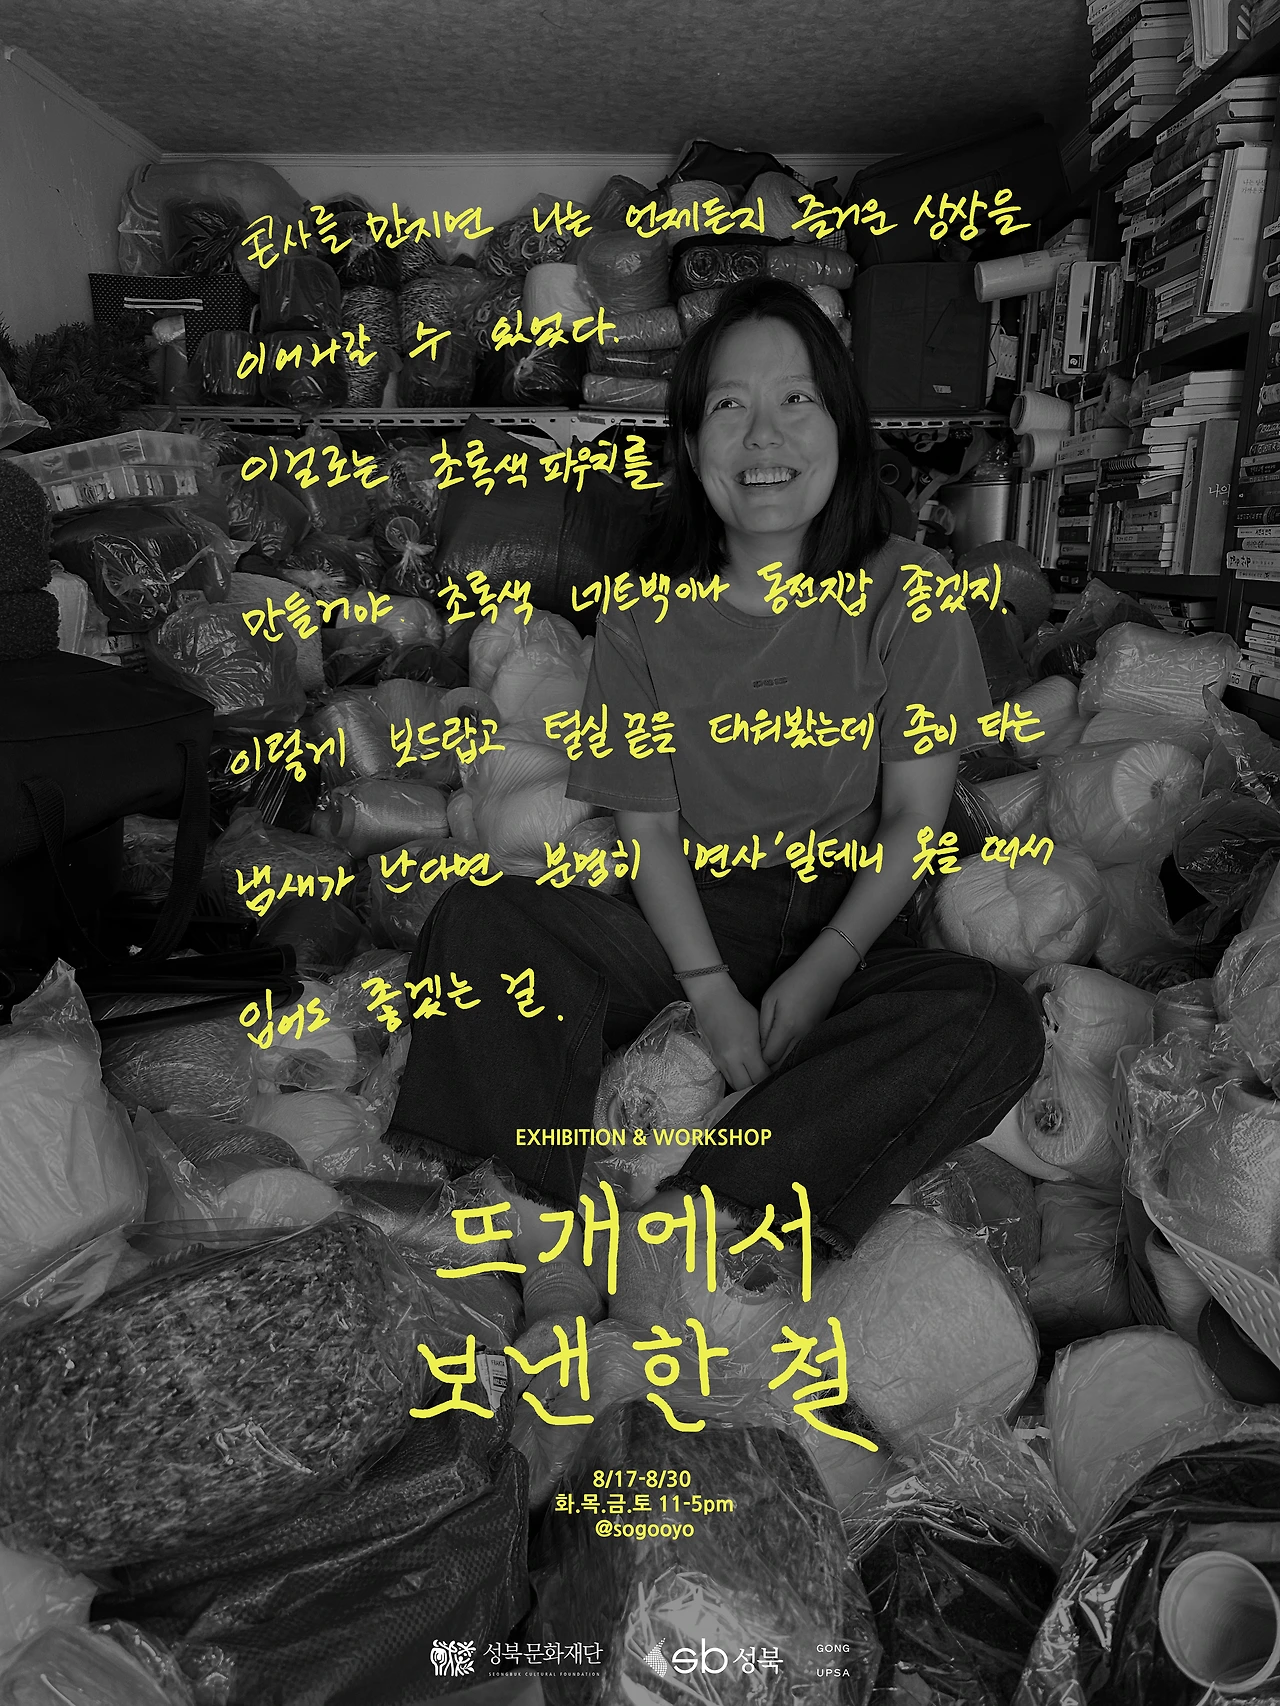 콘사를 만지면 나는 언제든지 즐거운 상상을
이어나갈 수 있었다.
이걸로는 초록색 파우치를
만들거야. 초록색 네트백이나 동전지갑 좋겠지.
이렇게 보드랍고 털실 끝을 태워봤는데 종이 타는
냄새가 난다면 분명히 '면사'일테니 옷을 떠서
입어도 좋겠는 걸.
EXHIBITION & WORKSHOP
뜨개에서
보낸 한 철
8/17-8/30
화.목.금.토 11-5pm
@sogooyo
성북문화재단
SEONGBUK CULTURAL FOUNDATION
sb 성북
GONG
UPSA